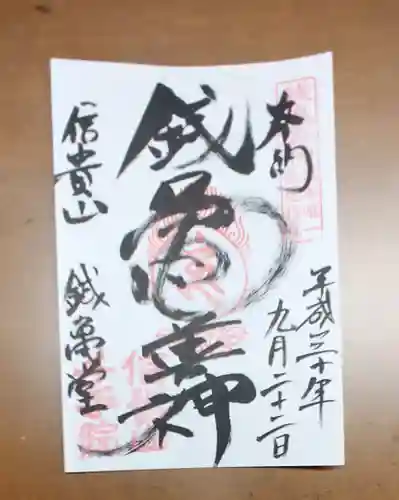 奉納
平成三十年
九月二十二日
銭亀善神
信貴山 銭亀堂